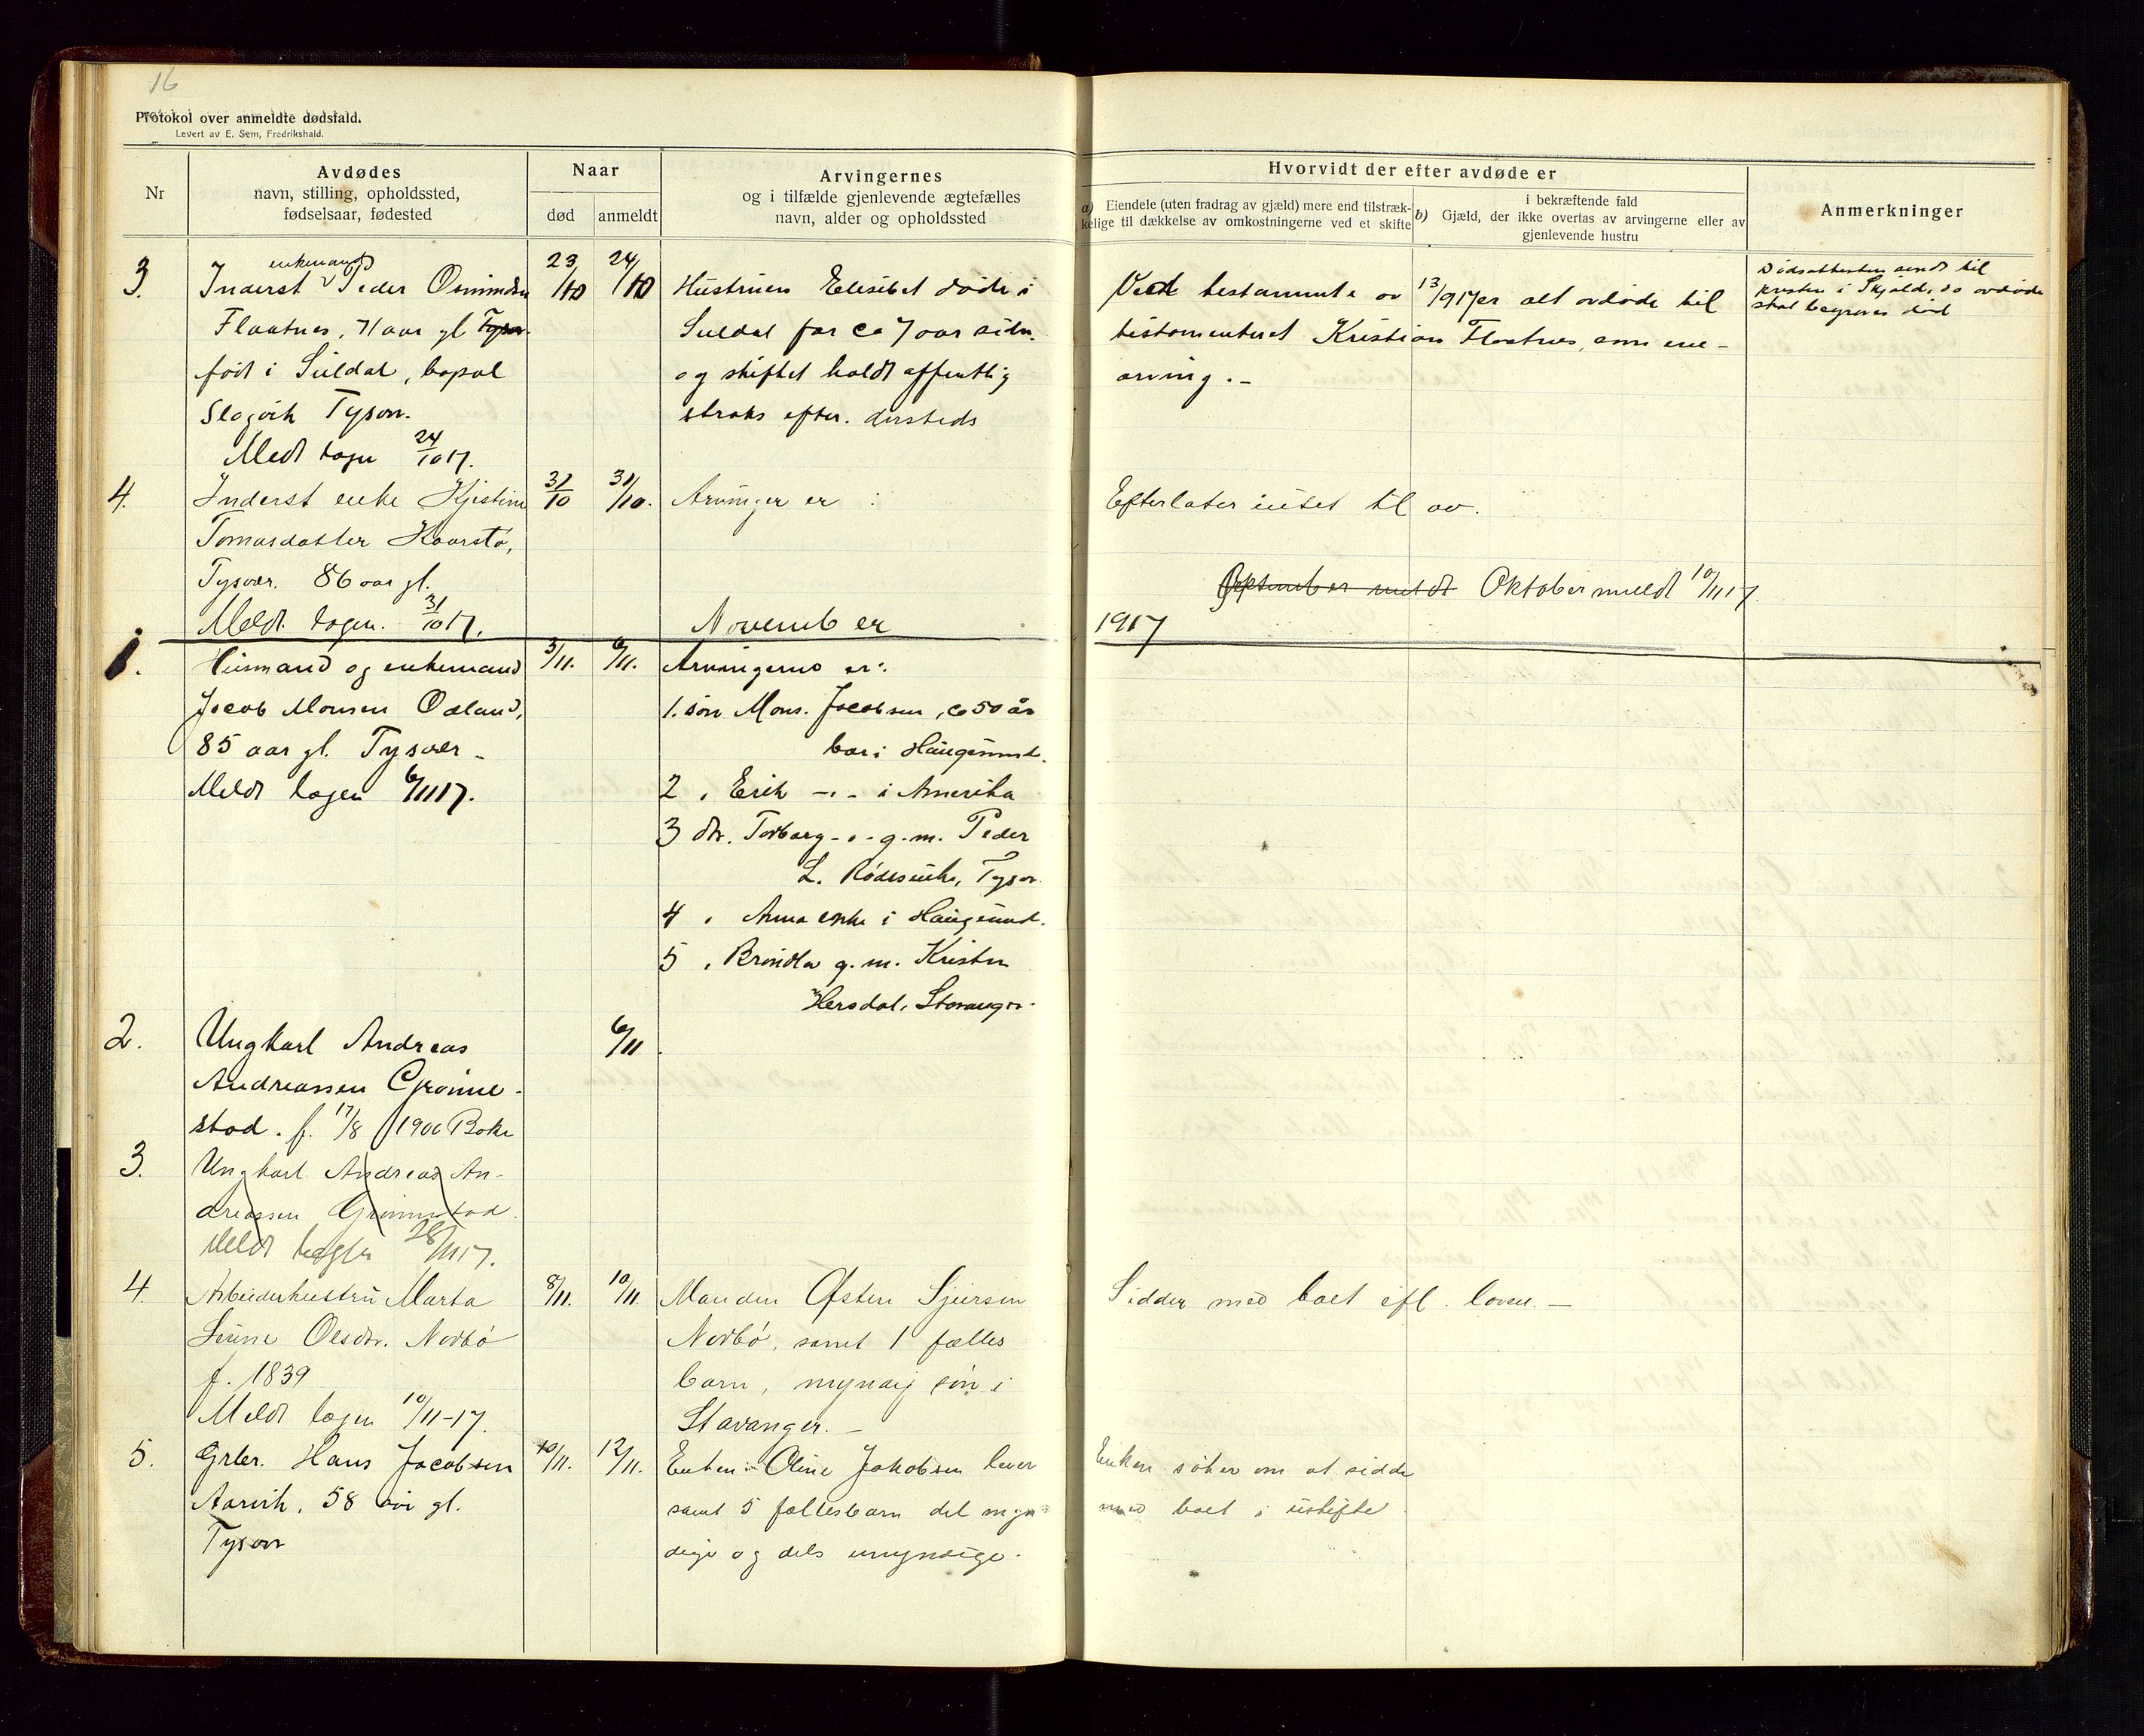 16
Protokol over anmeldte dødsfald.
Levert av E. Sem, Fredrikshald.
Nr
Avdødes
navn, stilling, opholdssted,
fødselsaar, fødested
Naar
død
anmeldt
Arvingernes
og i tilfælde gjenlevende ægtefælles
navn, alder og opholdssted
Hvorvidt der efter avdøde er
a) Eiendele (uten fradrag av gjæld) mere end tilstræk-
kelige til dækkelse av omkostningerne ved et skifte
i bekræftende fald
b) Gjæld, der ikke overtas av arvingerne eller av
gjenlevende hustru
Anmerkninger
3.
enkemand
Inderst Peder Osmundsen
Flaatnes, 71 aar gl
født i Suldal, bopæl
Tysvær.
Meldt lagen 24/10 17.
23/10
24/10
Hustruen Elisibet døde i
Suldal for ca 7 aar siden
og skiftet holdt offentlig
straks efter. dersteds
Ved testamente av 13/9 17 er alt avdøde til
testamenteret Kristian Flaatnes, som ene-
arving. -
Dødsattesten sendt til
presten i Skjold, da avdøde
skal begraves der
4.
Inderst enke Kjistine
Tomasdatter Haarstø,
Tysvær. 86 aar gl.
Meldt lagen. 31/10 17.
31/10
31/10.
Arvinger er :
Efterlater intet til arv.
September meldt Oktober meldt 10/11 17.
November
1917
1.
Husmand og enkemand
Jacob Monsen Ødland,
85 aar gl. Tysvær -
Meldt lagen 6/11 17.
3/11.
6/11.
Arvingerne er:
1. søn Mons Jacobsen, ca 50 år
bor i Haugesund.
2 " Erik -"- i Amerika
3 dtr. Torborg -"- g.m. Peder
L. Tysvær.
4 " Anna enke i Haugesund.
5 " g.m. Kristen
Hersdal, Stavanger.
2.
Ungkarl Andreas
Andreassen Grønne-
stad. f. 17/8 1900 Bokn
6/11
3.
Ungkarl Andreas An-
dreassen Grønnestad.
Meldt lagen 28/11 17.
4.
Arbeiderhustru Marta
Serine Olsdtr. Nordbø
f. 1839
Meldt lagen 10/11-17.
8/11.
10/11.
Manden Østen Sjursen
Nordbø, samt 1 fælles
barn, myndig søn i
Stavanger. -
Sidder med boet efl. loven. -
5.
Grbr. Hans Jacobsen
Aarvik, 58 aar gl.
Tysvær
10/11.
12/11.
Enken: Oline Jakobsen lever
samt 5 fællesbarn del myn-
dige og dels umyndige.
Enken søker om at sidde
med boet i uskifte